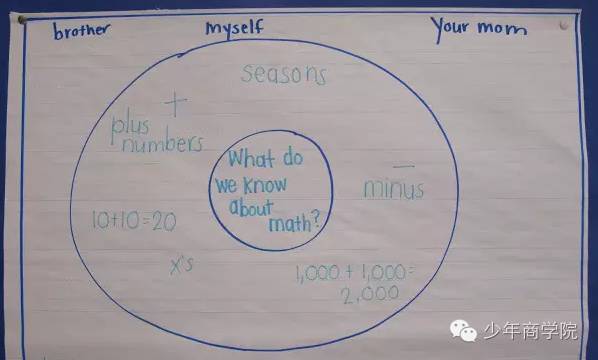 brother
myself
Your mom
seasons
+
plus
numbers
What do
we know
about
math?
−
minus
10+10=20
x's
1,000 + 1,000=
2,000
少年商学院